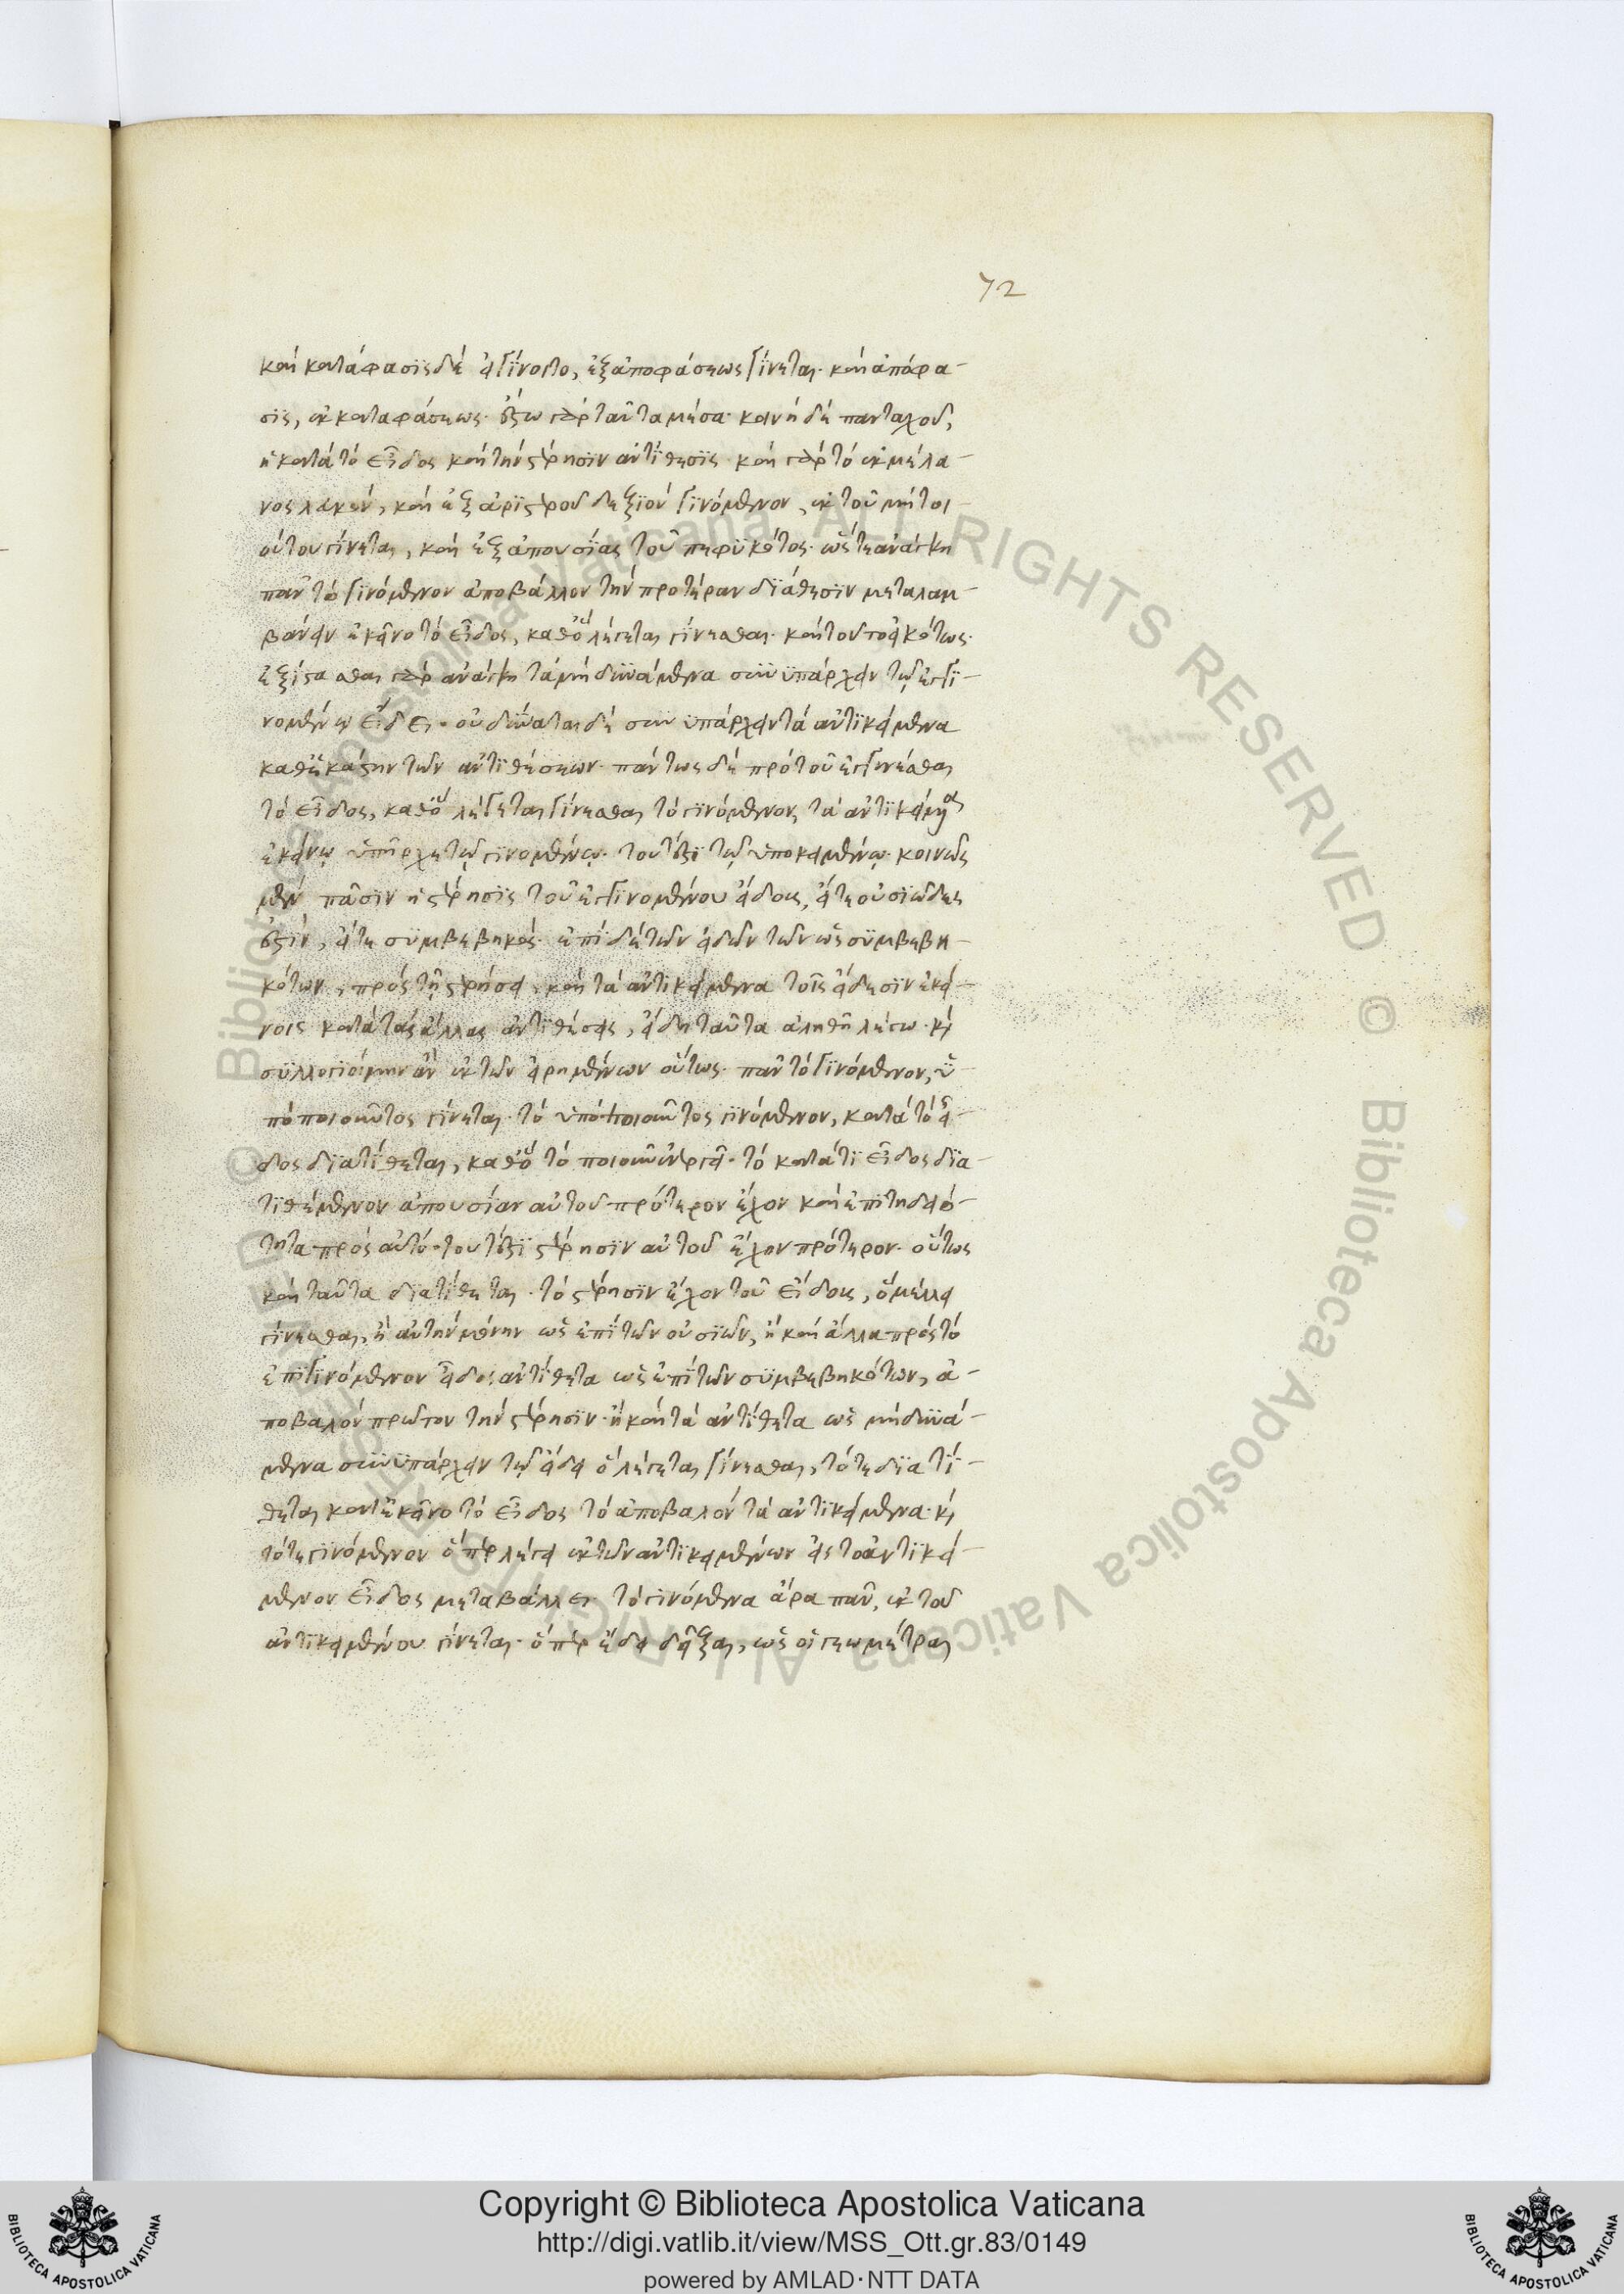 72
καὶ κατάφασις δὲ εἰ γίνοιτο, ἐξ ἀποφάσεως γίνεται· καὶ ἀπόφα-
σις, ἐκ καταφάσεως· ἔξω γὰρ ταῦτα μέσα· κοινὴ δὲ πανταχοῦ,
ἡ κατὰ τὸ εἶδος καὶ τὴν στέρησιν ἀντίθεσις· καὶ γὰρ τὸ ἐκ μέλα-
νος λευκὸν, καὶ ἐξ ἀριστεροῦ δεξιὸν γινόμενον, ἐκ τοῦ μὴ τοι
ούτου γίνεται, καὶ ἐξ ἀπουσίας τοῦ πεφυκότος· ὥστε ἀνάγκη
πᾶν τὸ γινόμενον ἀποβάλλον τὴν προτέραν διάθεσιν μεταλαμ-
βάνειν ἐκεῖνο τὸ εἶδος, καθ' ὃ λέγεται γίνεσθαι· καὶ τοῦτο εἰκότως·
ἐξίστασθαι γὰρ ἀνάγκη τὰ μὴ δυνάμενα συνυπάρχειν τῷ ἐγγι-
νομένῳ εἴδει· οὐ δύναται δὲ συνυπάρχειν τὰ ἀντικείμενα
καθ' ἑκάστην τῶν ἀντιθέσεων· πάντως δὲ πρὸ τοῦ ἐγγίνεσθαι
τὸ εἶδος, καθ' ὃ λέγεται γίνεσθαι τὸ γινόμενον, τὰ ἀντικείμενα
ἐκείνῳ ὑπῆρχε τῷ γινομένῳ· τουτέστι τῷ ὑποκειμένῳ· κοινῶς
μὲν πᾶσιν ἡ στέρησις τοῦ ἐγγινομένου εἴδους, εἴτε οὐσιῶδες
ἐστὶν, εἴτε συμβεβηκός· ἐπὶ δὲ τῶν εἰδῶν τῶν ὡς συμβεβη-
κότων, πρὸς τῇ στερήσει, καὶ τὰ ἀντικείμενα τοῖς εἴδεσιν ἐκεί-
νοις κατὰ τὰς ἄλλας ἀντιθέσεις, εἰ δὴ ταῦτα ἀληθῆ λέγω· καὶ
συλλογιοίμην ἂν ἐκ τῶν εἰρημένων οὕτως· πᾶν τὸ γινόμενον, ὑ-
πὸ ποιοῦντος γίνεται· τὸ ὑπὸ ποιοῦντος γινόμενον, κατὰ τὸ εἶ-
δος διατίθεται, καθ' ὃ τὸ ποιοῦν ἐνεργεῖ· τὸ κατά τι εἶδος δια-
τιθέμενον ἀπουσίαν αὐτοῦ πρότερον ἔχον καὶ ἐπιτηδειό-
τητα πρὸς αὐτό· τουτέστι στέρησιν αὐτοῦ ἔχον πρότερον· οὕτως
καὶ ταῦτα διατίθεται· τὸ στέρησιν ἔχον τοῦ εἴδους, ὃ μέλλει
γίνεσθαι, ἢ αὐτὴν μόνην ὡς ἐπὶ τῶν οὐσιῶν, ἢ καὶ ἄλλα πρὸς τὸ
ἐπιγινόμενον εἶδος ἀντίθετα ὡς ἐπὶ τῶν συμβεβηκότων, ἀ-
ποβαλὸν πρῶτον τὴν στέρησιν· ἢ καὶ τὰ ἀντίθετα ὡς μὴ δυνά-
μενα συνυπάρχειν τῷ εἴδει ὃ λέγεται γίνεσθαι, τότε διατί-
θεται κατ' ἐκεῖνο τὸ εἶδος τὸ ἀποβαλὸν τὰ ἀντικείμενα· καὶ
τότε γινόμενον ὅπερ λέγει ἐκ τῶν ἀντικειμένων εἰς τὸ ἀντικεί-
μενον εἶδος μεταβάλλει· τὸ γινόμενα ἄρα πᾶν, ἐκ τοῦ
ἀντικειμένου γίνεται· ὅπερ ἔδει δεῖξαι, ὡς οἱ γεωμέτραι
Copyright © Biblioteca Apostolica Vaticana
http://digi.vatlib.it/view/MSS_Ott.gr.83/0149
powered by AMLAD·NTT DATA
BIBLIOTECA APOSTOLICA VATICANA
BIBLIOTECA APOSTOLICA VATICANA